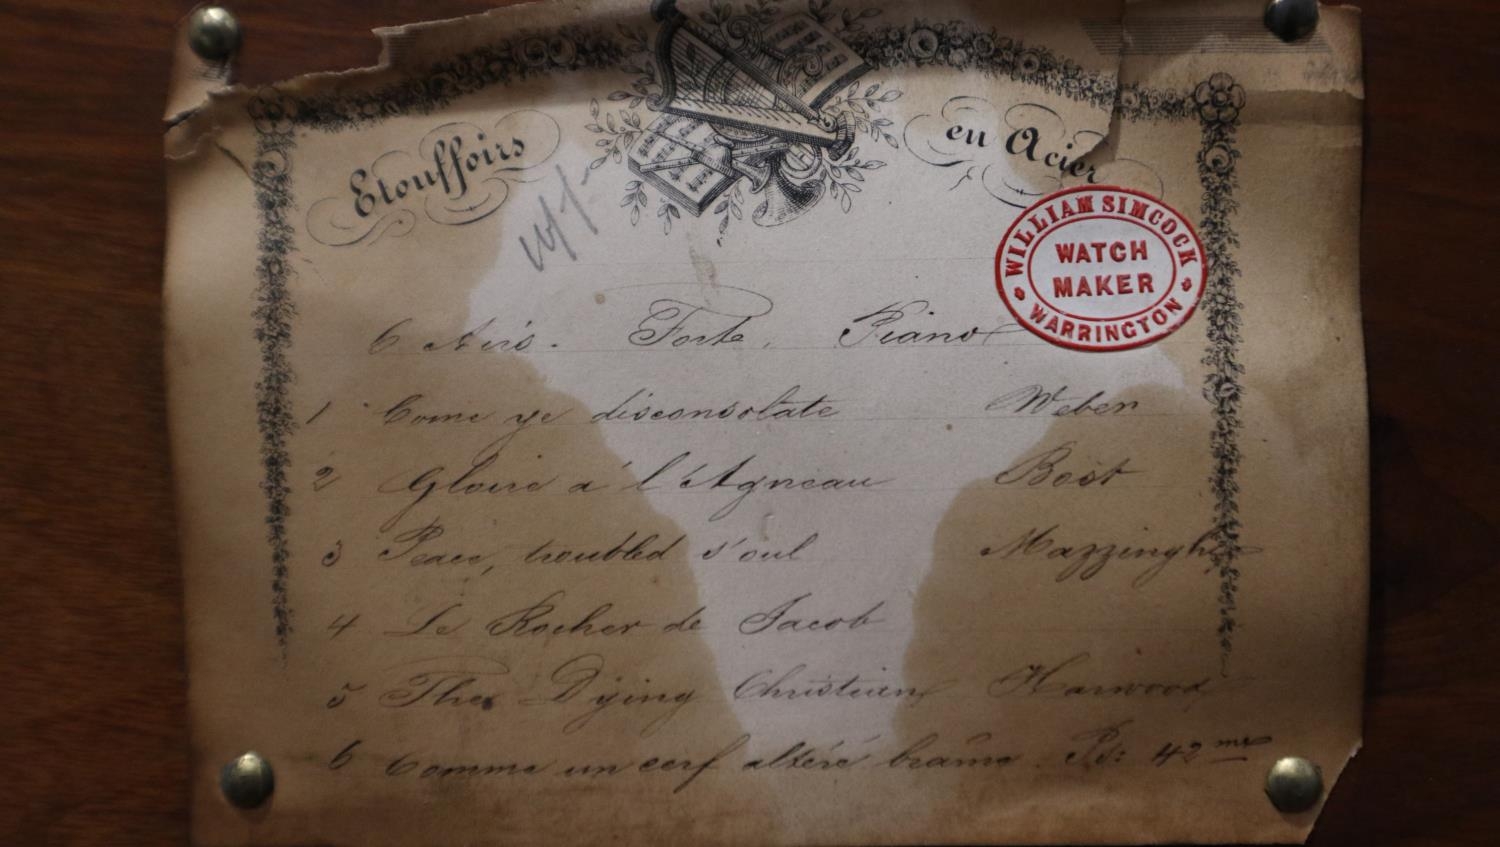 Etouffoirs en Acier
WILLIAM SIMCOCK
WATCH
MAKER
WARRINGTON
6 Airs. Forte, Piano
1 Come ye disconsolate Weber
2 Gloire á l'Agneau Bost
3 Peace, troubled s'oul Mazzinghi
4 Le Rocher de Jacob
5 The Dying Christian Harwood
6 Comme un cerf altéré brâme. Ps: 42me